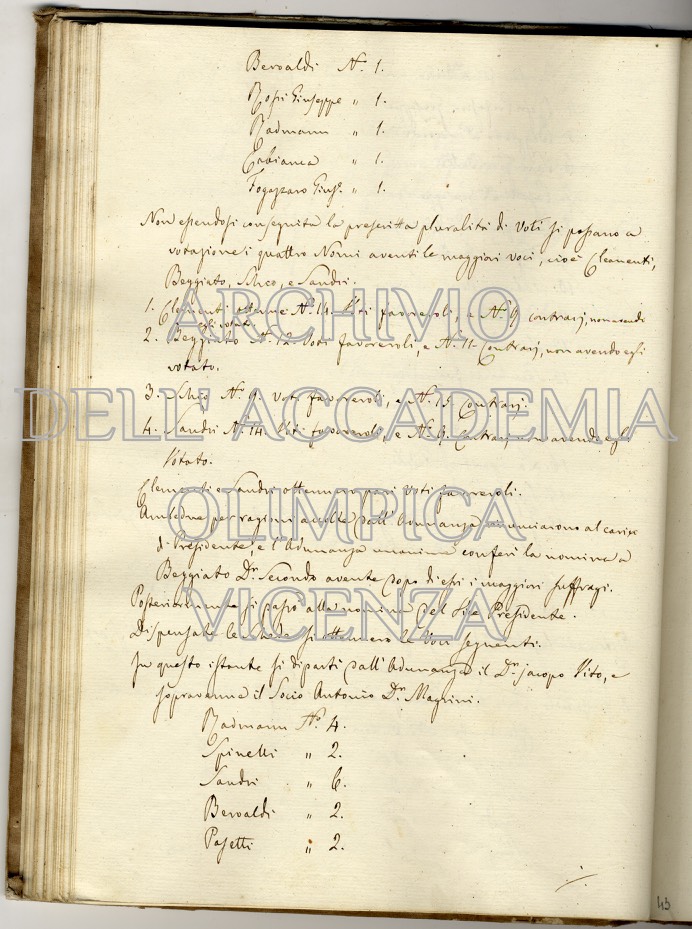 Beroaldi N.o 1.
Rossi Giuseppe " 1.
Radmann " 1.
Cabianca " 1.
Fogazzaro Gius.e " 1.
Non essendosi conseguita la prescritta pluralità di Voti si passano a
votazione i quattro Nomi aventi le maggiori voci, cioè Clementi,
Beggiato, Schio, e Sandri.
1. Clementi ottenne N.o 14. Voti favorevoli, e N.o 9 contrarj, non avendo
egli votato.
2. Beggiato N.o 12. Voti favorevoli, e N.o 11 Contrarj, non avendo egli
votato.
3. Schio N.o 9. Voti favorevoli, e N.o 15. Contrarj.
4. Sandri N.o 14. Voti favorevoli, e N.o 9. Contrarj non avendo egli
Votato.
Clementi e Sandri ottennero pari Voti favorevoli.
Ambedue per ragioni accolte dall'Adunanza rinunciarono al carico
di Presidente, e l'Adunanza unanime conferì la nomina a
Beggiato D.r Secondo avente dopo di essi i maggiori suffragi.
Posteriormente si passò alla nomina del Vice Presidente.
Dispensate le schede si ottennero le Voci seguenti.
In questo istante si dipartì dall'Adunanza il D.r Jacopo Vito, e
sopravenne il Socio Antonio D.r Magrini.
Radmann N.o 4.
Spinelli " 2.
Sandri " 6.
Beroaldi " 2.
Pasetti " 2.
43
ARCHIVIO
DELL'ACCADEMIA
OLIMPICA
VICENZA